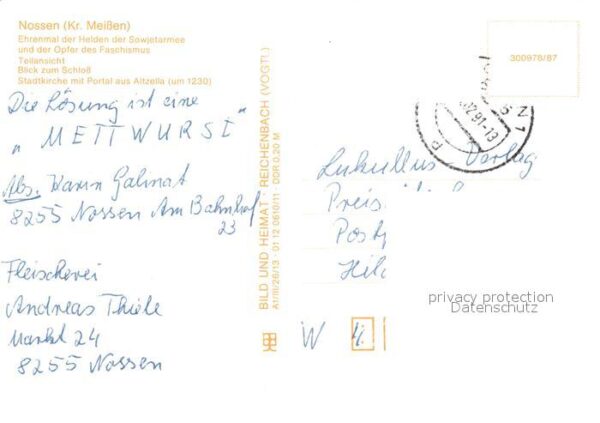 Nossen (Kr. Meißen)
Ehrenmal der Helden der Sowjetarmee
und der Opfer des Faschismus
Teilansicht
Blick zum Schloß
Stadtkirche mit Portal aus Altzella (um 1230)
Die Lösung ist eine
„METTWURST"
Abs. Karin Galmat
8255 Nossen Am Bahnhof
23
Fleischerei
Andreas Thiele
Markt 24
8255 Nossen
BILD UND HEIMAT REICHENBACH (VOGTL)
A1/III/26/13 01 12 0610/11 DDR 0,20 M
300978/87
02.91-13
Lukullus-Verlag
Preis
Post
Hil
W 4.
privacy protection
Datenschutz